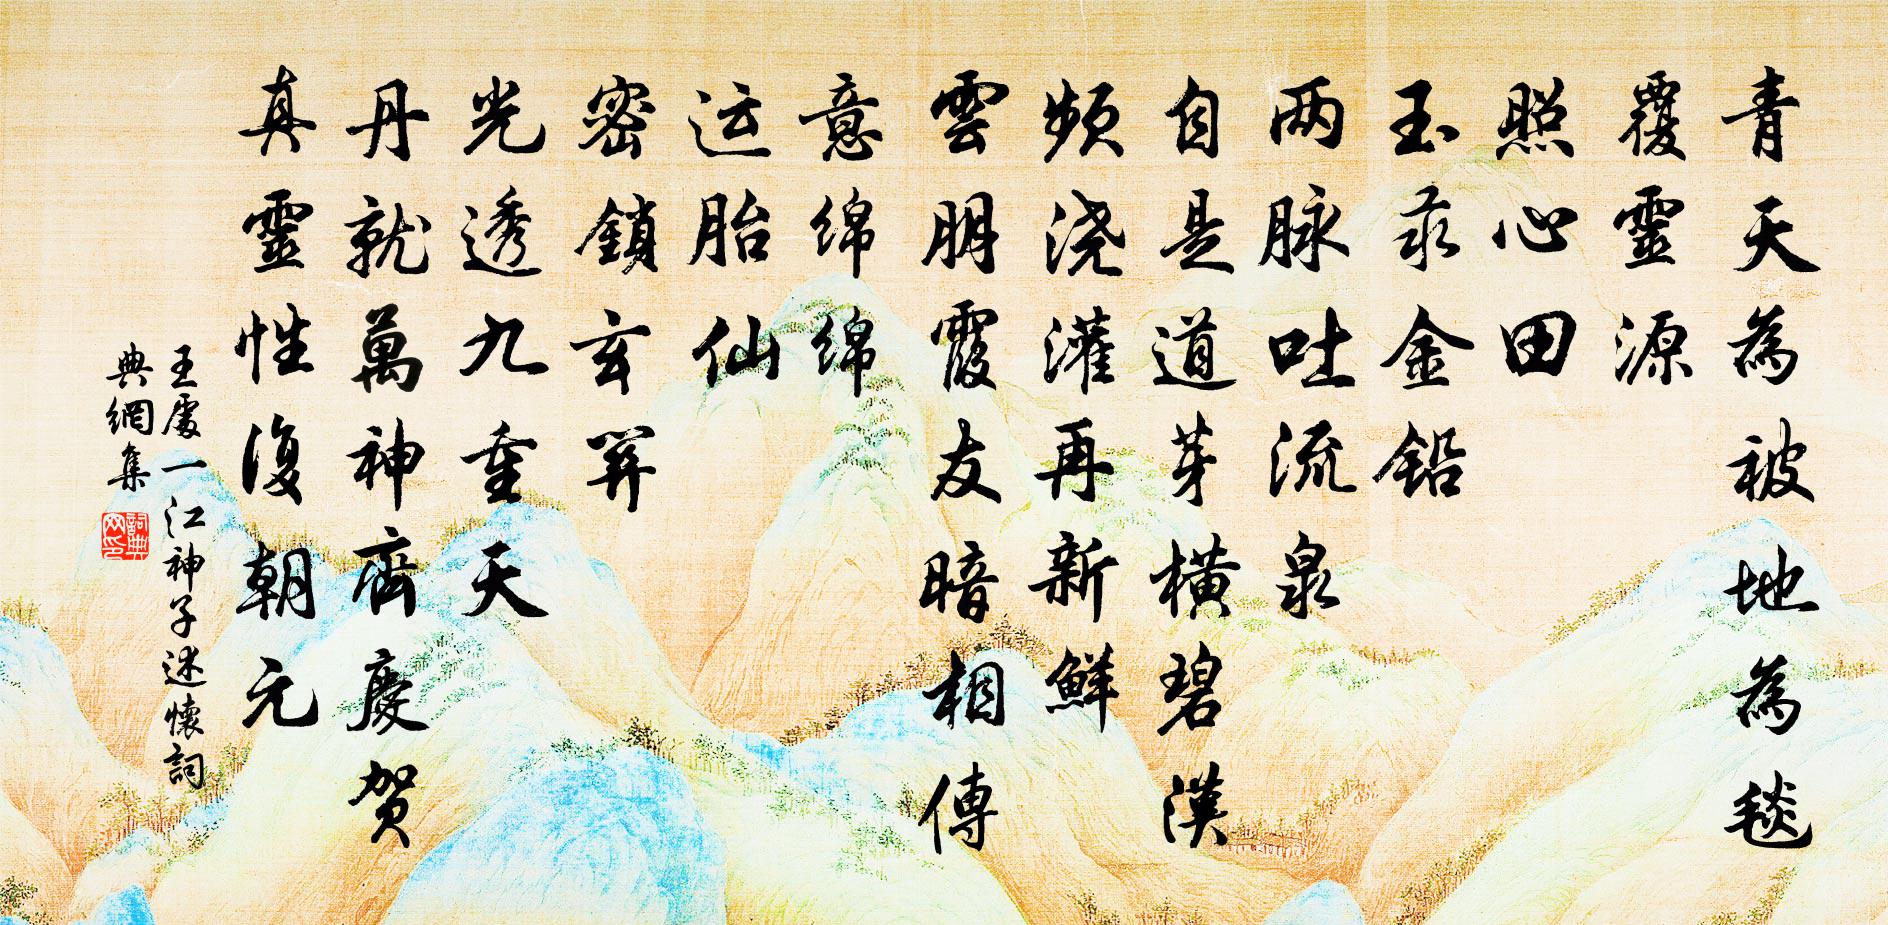 青天為被地為毯
覆靈源
照心田
玉汞金铅
两脉吐流泉
自是道芽横碧漢
频浇灌再新鮮
雲朋霞友暗相傳
意绵绵
运胎仙
密鎖玄關
光透九重天
丹就萬神齊慶贺
真靈性復朝元
王處一江神子述懷詞
典網集
詞典网印